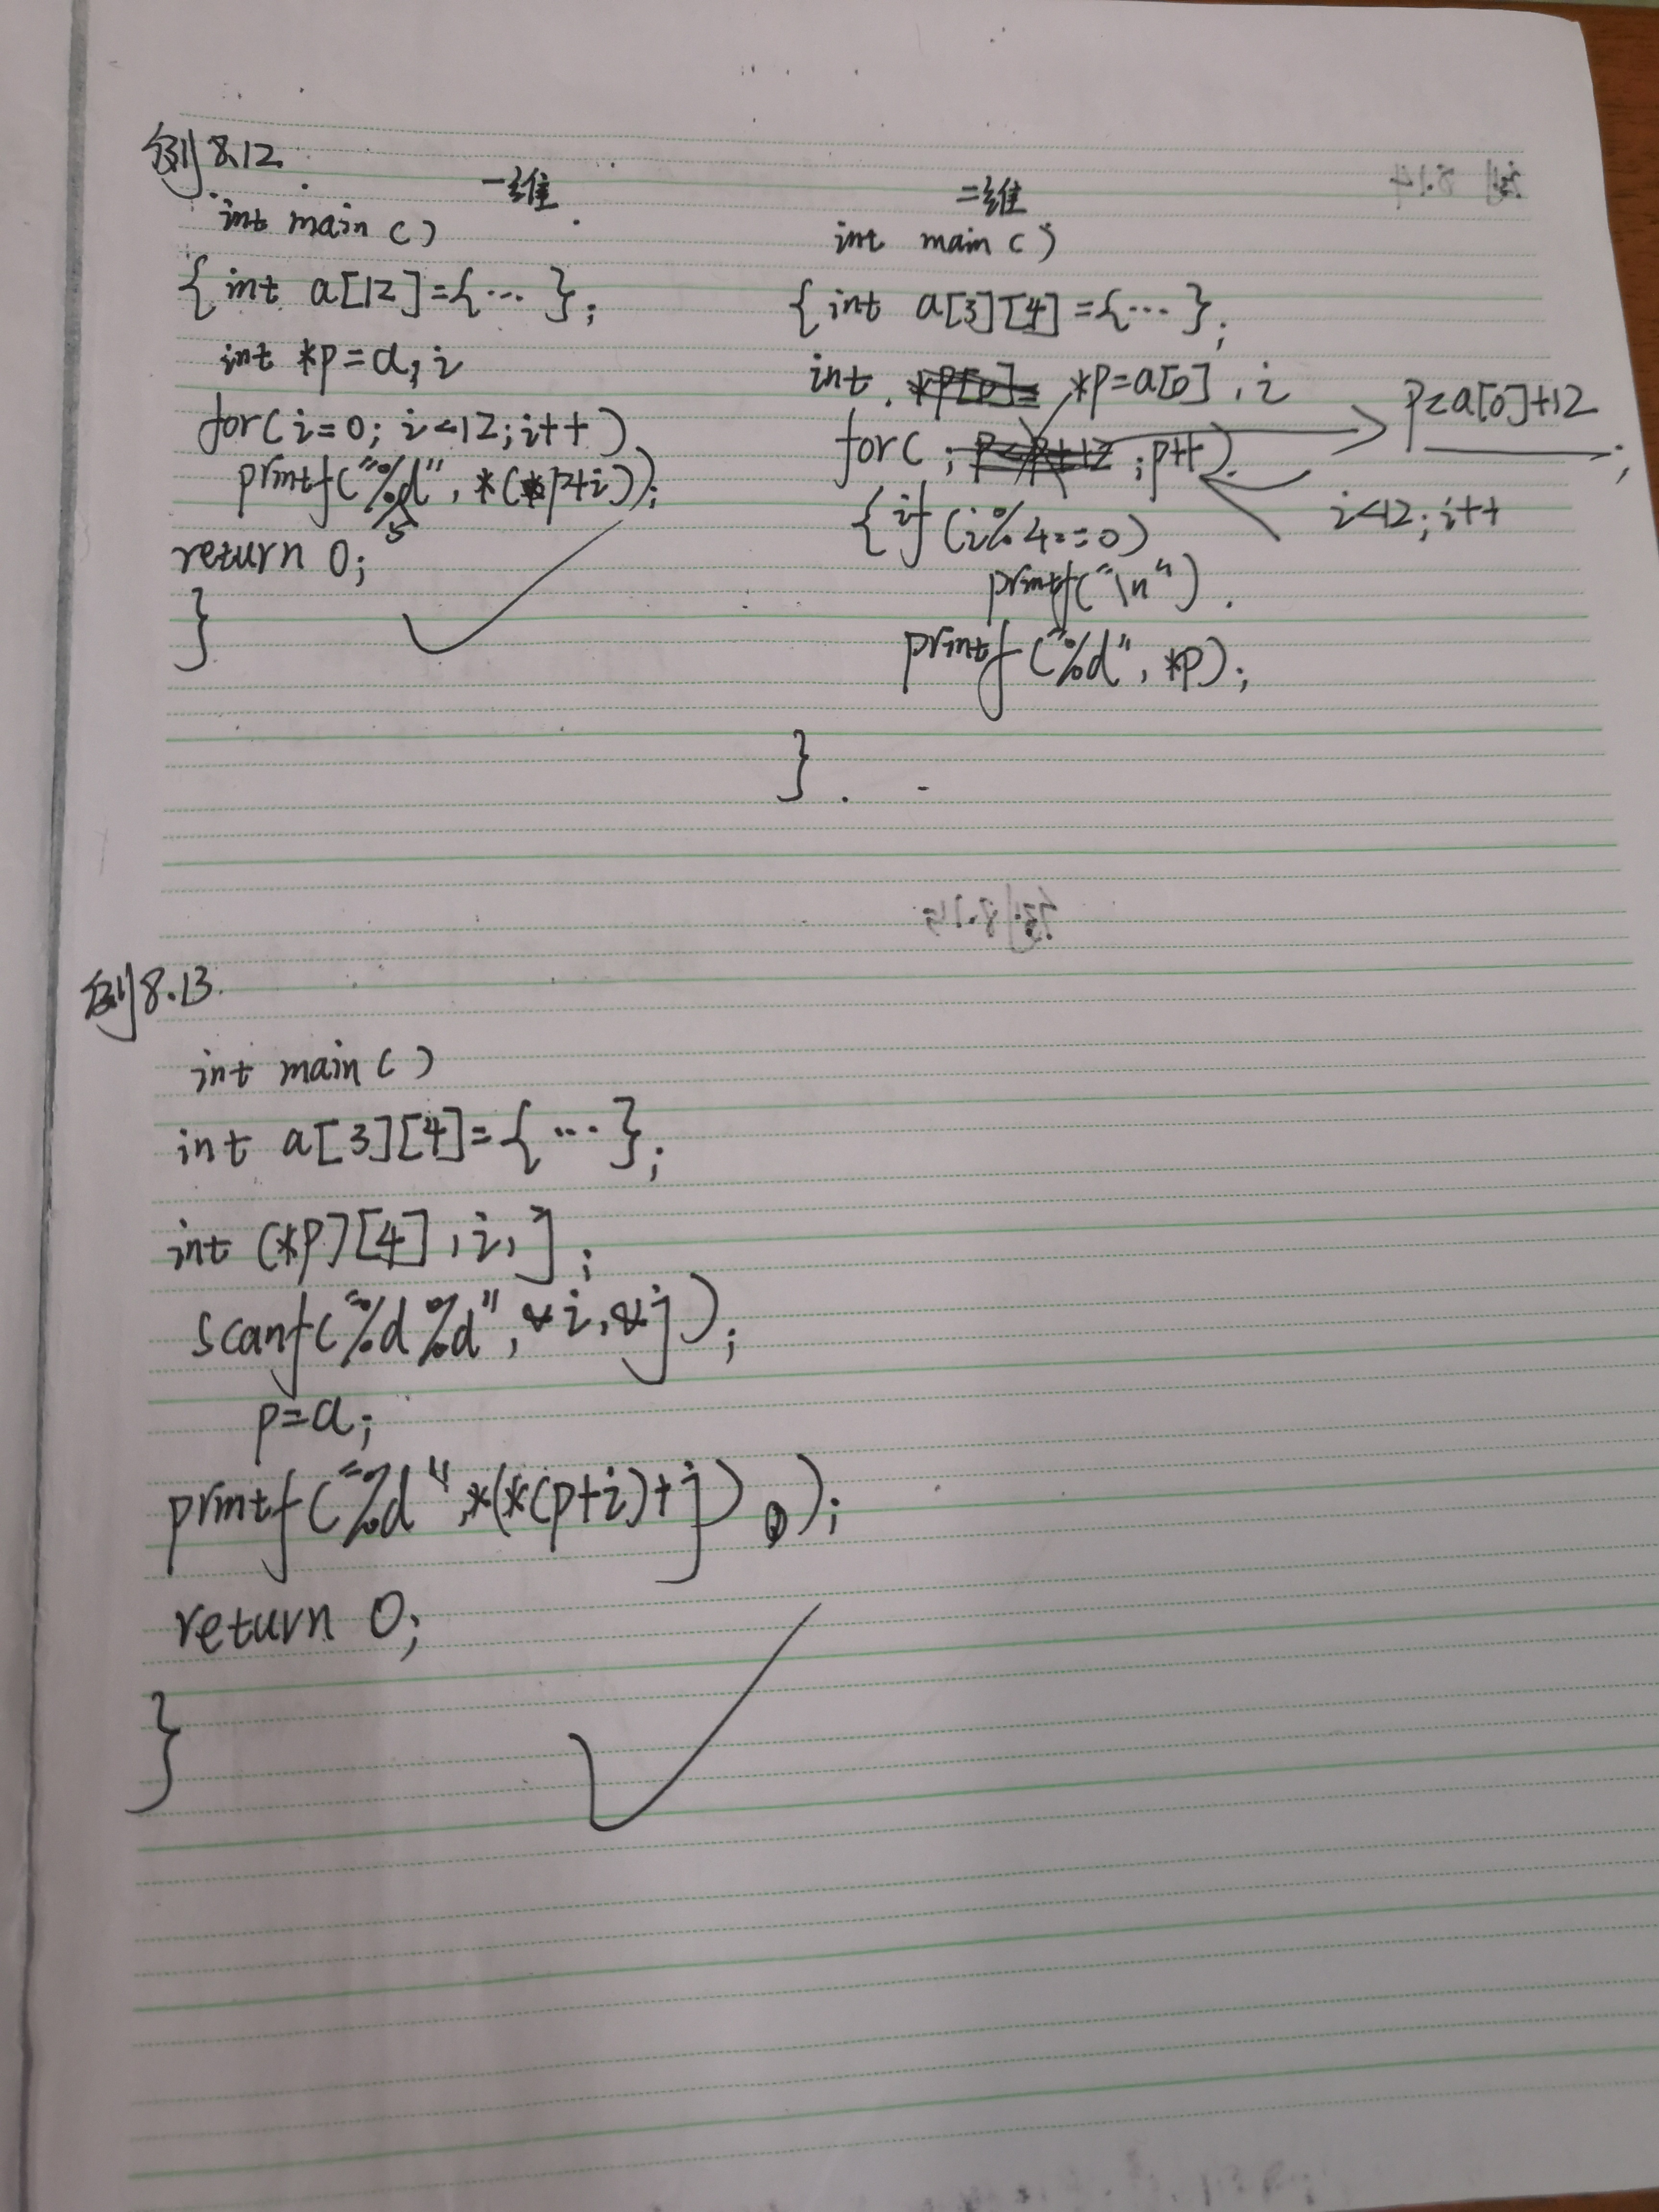 例8.12
一维
int main()
{int a[12]={…};
int *p=a,i
for(i=0;i<12;i++)
printf("%d",*(p+i));
5
return 0;
}
二维
int main()
{int a[3][4]={…};
int *p=a[0],i
for(; ;p++)
p<a[0]+12;
i<12;i++
{if(i%4==0)
printf("\n")
printf("%d",*p);
}
例8.13
int main()
int a[3][4]={…};
int (*p)[4],i,j;
scanf("%d%d",&i,&j);
p=a;
printf("%d",*(*(p+i)+j));
return 0;
}